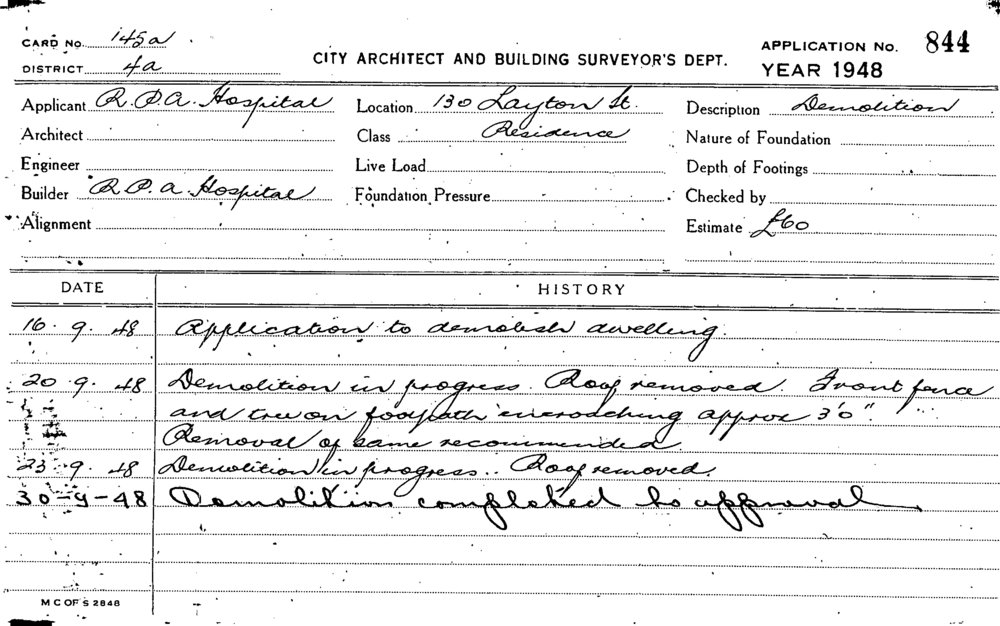 CARD No. 145a
DISTRICT 4a
CITY ARCHITECT AND BUILDING SURVEYOR'S DEPT.
APPLICATION No. 844
YEAR 1948
Applicant R.P.A. Hospital
Location 130 Layton St.
Description Demolition
Architect
Class Residence
Nature of Foundation
Engineer
Live Load
Depth of Footings
Builder R.P.A. Hospital
Foundation Pressure
Checked by
Alignment
Estimate £60
DATE HISTORY
16.9.48 Application to demolish dwelling.
20.9.48 Demolition in progress. Roof removed. Front fence
and tree on footpath encroaching approx 3'0".
Removal of same recommended.
23.9.48 Demolition in progress.. Roof removed.
30-9-48 Demolition completed to approval.
M C OF S 2848